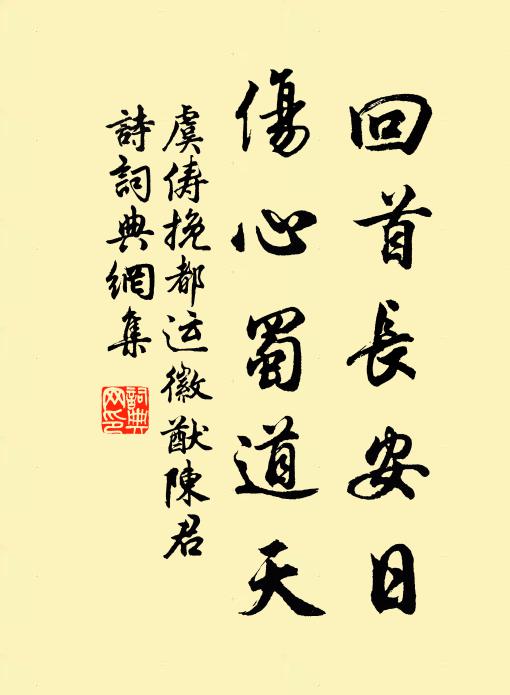 回首長安日
傷心蜀道天
虞俦挽都运徽猷陳君
詩詞典網集
詞典
网印